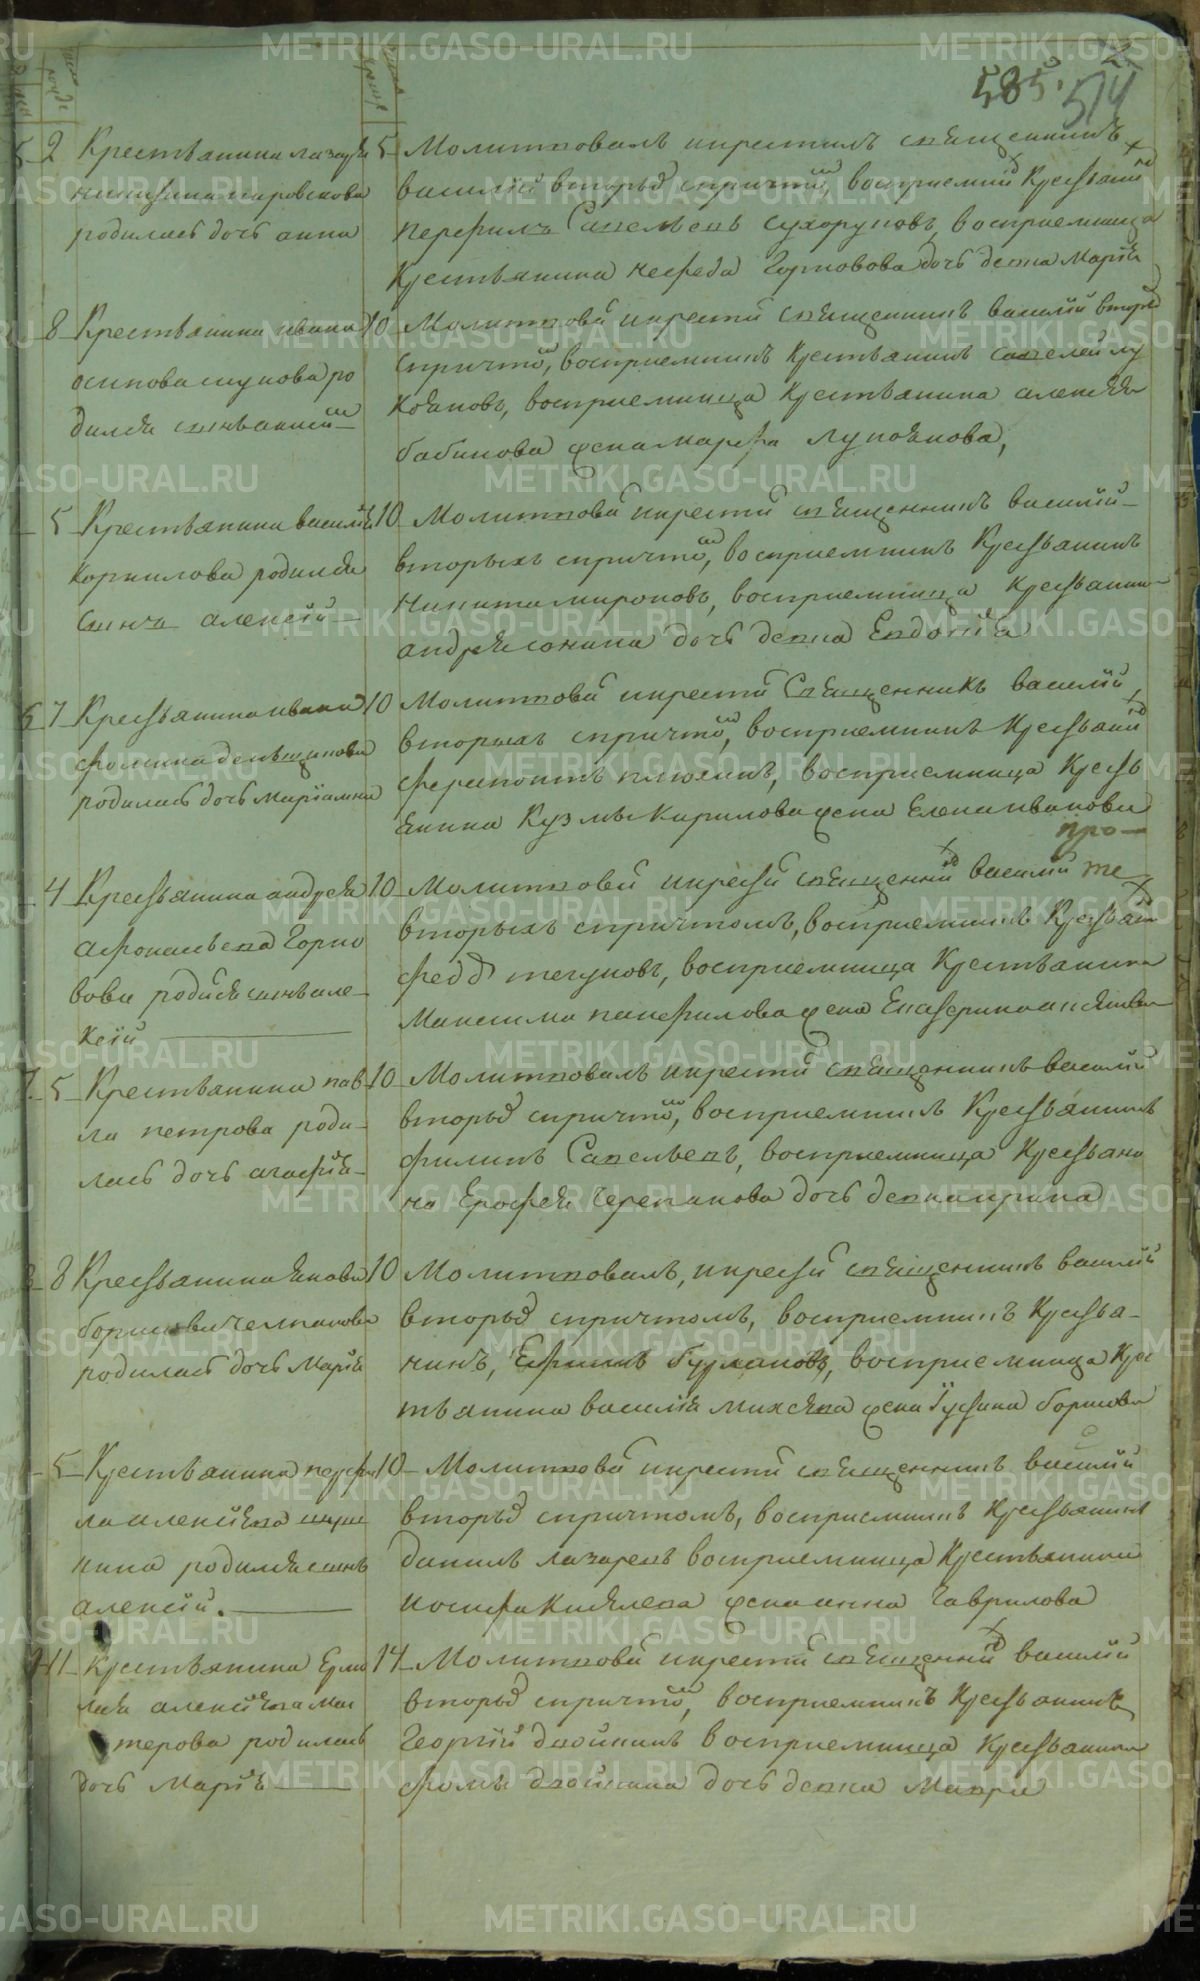 585.
514
2 Крестьянина лазаря
родилась дочь анна
5 Молитвовалъ икрестилъ священникъ
василiй вторыхъ спричтомъ, восприемникъ Крестьянинъ
перфилъ Савельевъ сухоруковъ, восприемница
Крестьянина нефеда Гормовова дочь девка Марiя
8 Крестьянина ивана
осипова шукова ро
дился сынъ
10 Молитвовалъ икрестилъ священникъ василiй вторыхъ
спричтомъ, восприемникъ крестьянинъ савелей лу
кояновъ, восприемница крестьянина алексея
бабинова жена марфа лукоянова,
5 Крестьянина василья
Корнилова родился
Сынъ алексiй
10 Молитвовалъ икрестилъ священникъ василiй
вторыхъ спричтомъ, восприемникъ Крестьянинъ
никита мироновъ, восприемница Крестьянина
андрея дочь девка Евдокiя
7 Крестьянина ивана
фомина
родилась дочь Марiамна
10 Молитвовалъ икрестилъ Священникъ василiй
вторыхъ спричтомъ, восприемникъ Крестьянинъ
ферапонтъ плюхинъ, восприемница Кресть
янина Кузмы Кирилова жена Елена иванова
про
4 Крестьянина андрея
афонасьева Горно
вова родился сынъ але
ксiй
10 Молитвовалъ икрестилъ священникъ василiй те
вторыхъ спричтомъ, восприемникъ Крестьянинъ
федоръ тегуновъ, восприемница Крестьянина
Максима панфилова жена Екатерина
5 Крестьянина пав
ла петрова роди
лась дочь агафiя
10 Молитвовалъ икрестилъ священникъ василiй
вторыхъ спричтомъ, восприемникъ Крестьянинъ
филипъ Савельевъ, восприемница Крестьяни
на Ерофея Черепанова дочь девка ирина
8 Крестьянина якова
борисова челпанова
родилась дочь Марiя
10 Молитвовалъ, икрестилъ священникъ василiй
вторыхъ спричтомъ, восприемникъ Крестья
нинъ, Ефимъ Бурлаковъ, восприемница Крес
тьянина василiя михеева жена Iустина борисова
5 Крестьянина перфи
ла алексеева
кина родился сынъ
алексiй.
10 Молитвовалъ икрестилъ священникъ василiй
вторыхъ спричтомъ, восприемникъ Крестьянинъ
данилъ лазаревъ восприемница Крестьянина
иосифа Киселева жена анна Гаврилова
11 Крестьянина Ермо
лая алексеева мас
терова родилась
дочь Марiя
14 Молитвовалъ икрестилъ священникъ василiй
вторыхъ спричтомъ, восприемникъ Крестьянинъ
Георгiй двойнинъ восприемница Крестьянина
фомы двойнина дочь девка Мавра